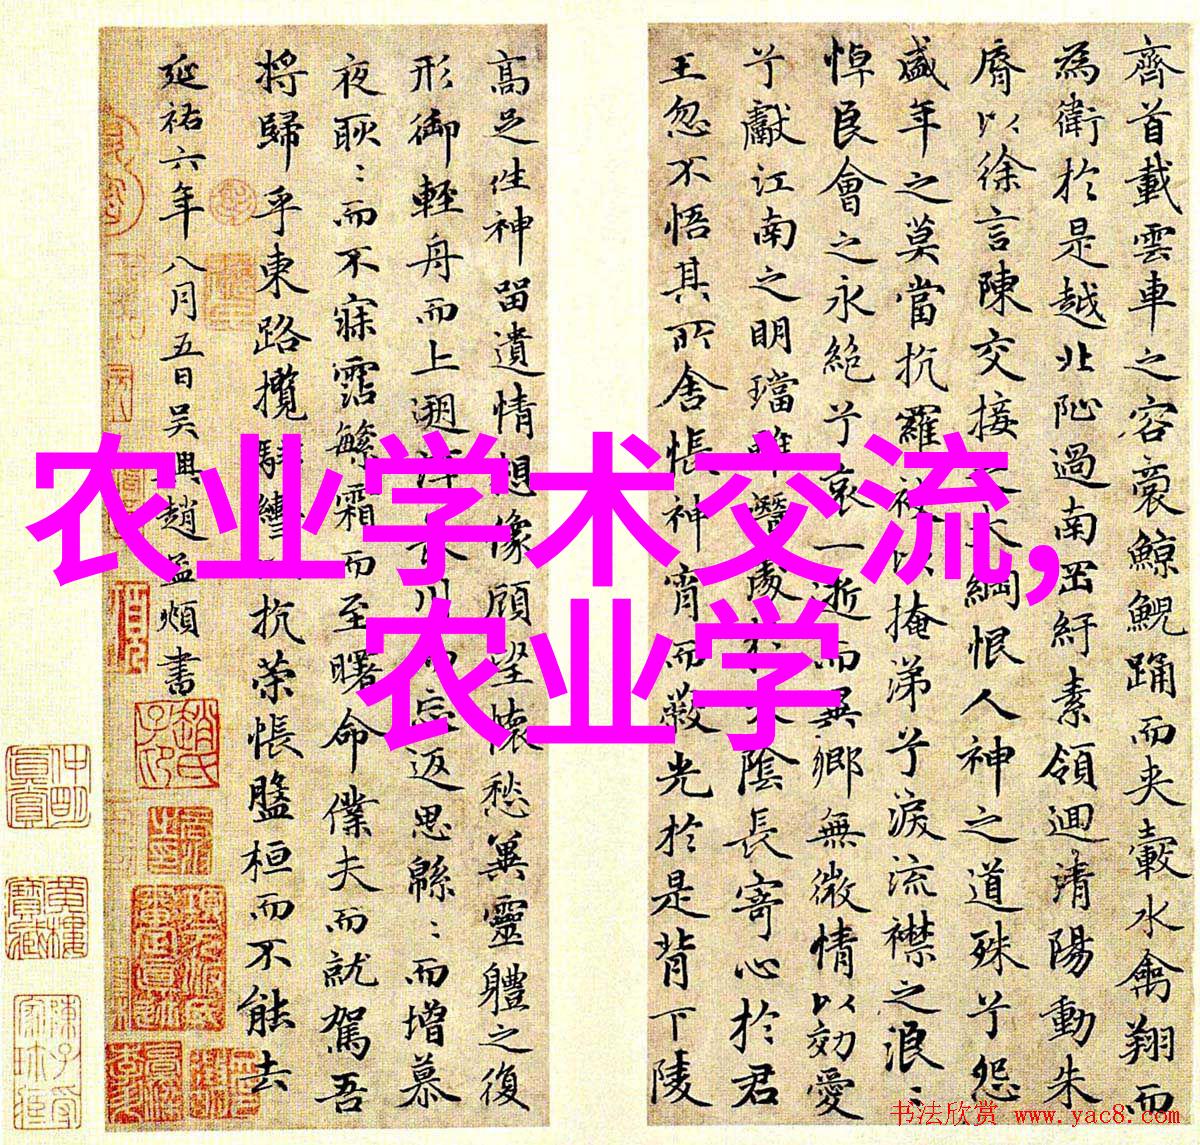 农业学术交流,
农业学
齊首載雲車之容裔鯨鯢踊而夾轂水禽翔而
為衛於是越北沚過南岡紆素領迴清陽動朱
脣以徐言陳交接之大綱恨人神之道殊兮怨
盛年之莫當抗羅袂以掩涕兮淚流襟之浪〻
悼良會之永絕兮哀一逝而異鄉無微情以効愛
兮獻江南之明璫雖潛處於太陰長寄心於君
王忽不悟其所舍悵神宵而蔽光於是背下陵
高足往神留遺情想像顧望懷愁冀靈體之復
形御輕舟而上遡浮長川而忘返思綿〻而增慕
夜耿〻而不寐霑繁霜而至曙命僕夫而就駕吾
將歸乎東路攬騑轡抗策悵盤桓而不能去
延祐六年八月五日吳興趙孟頫書
书法欣赏 www.yac8.com